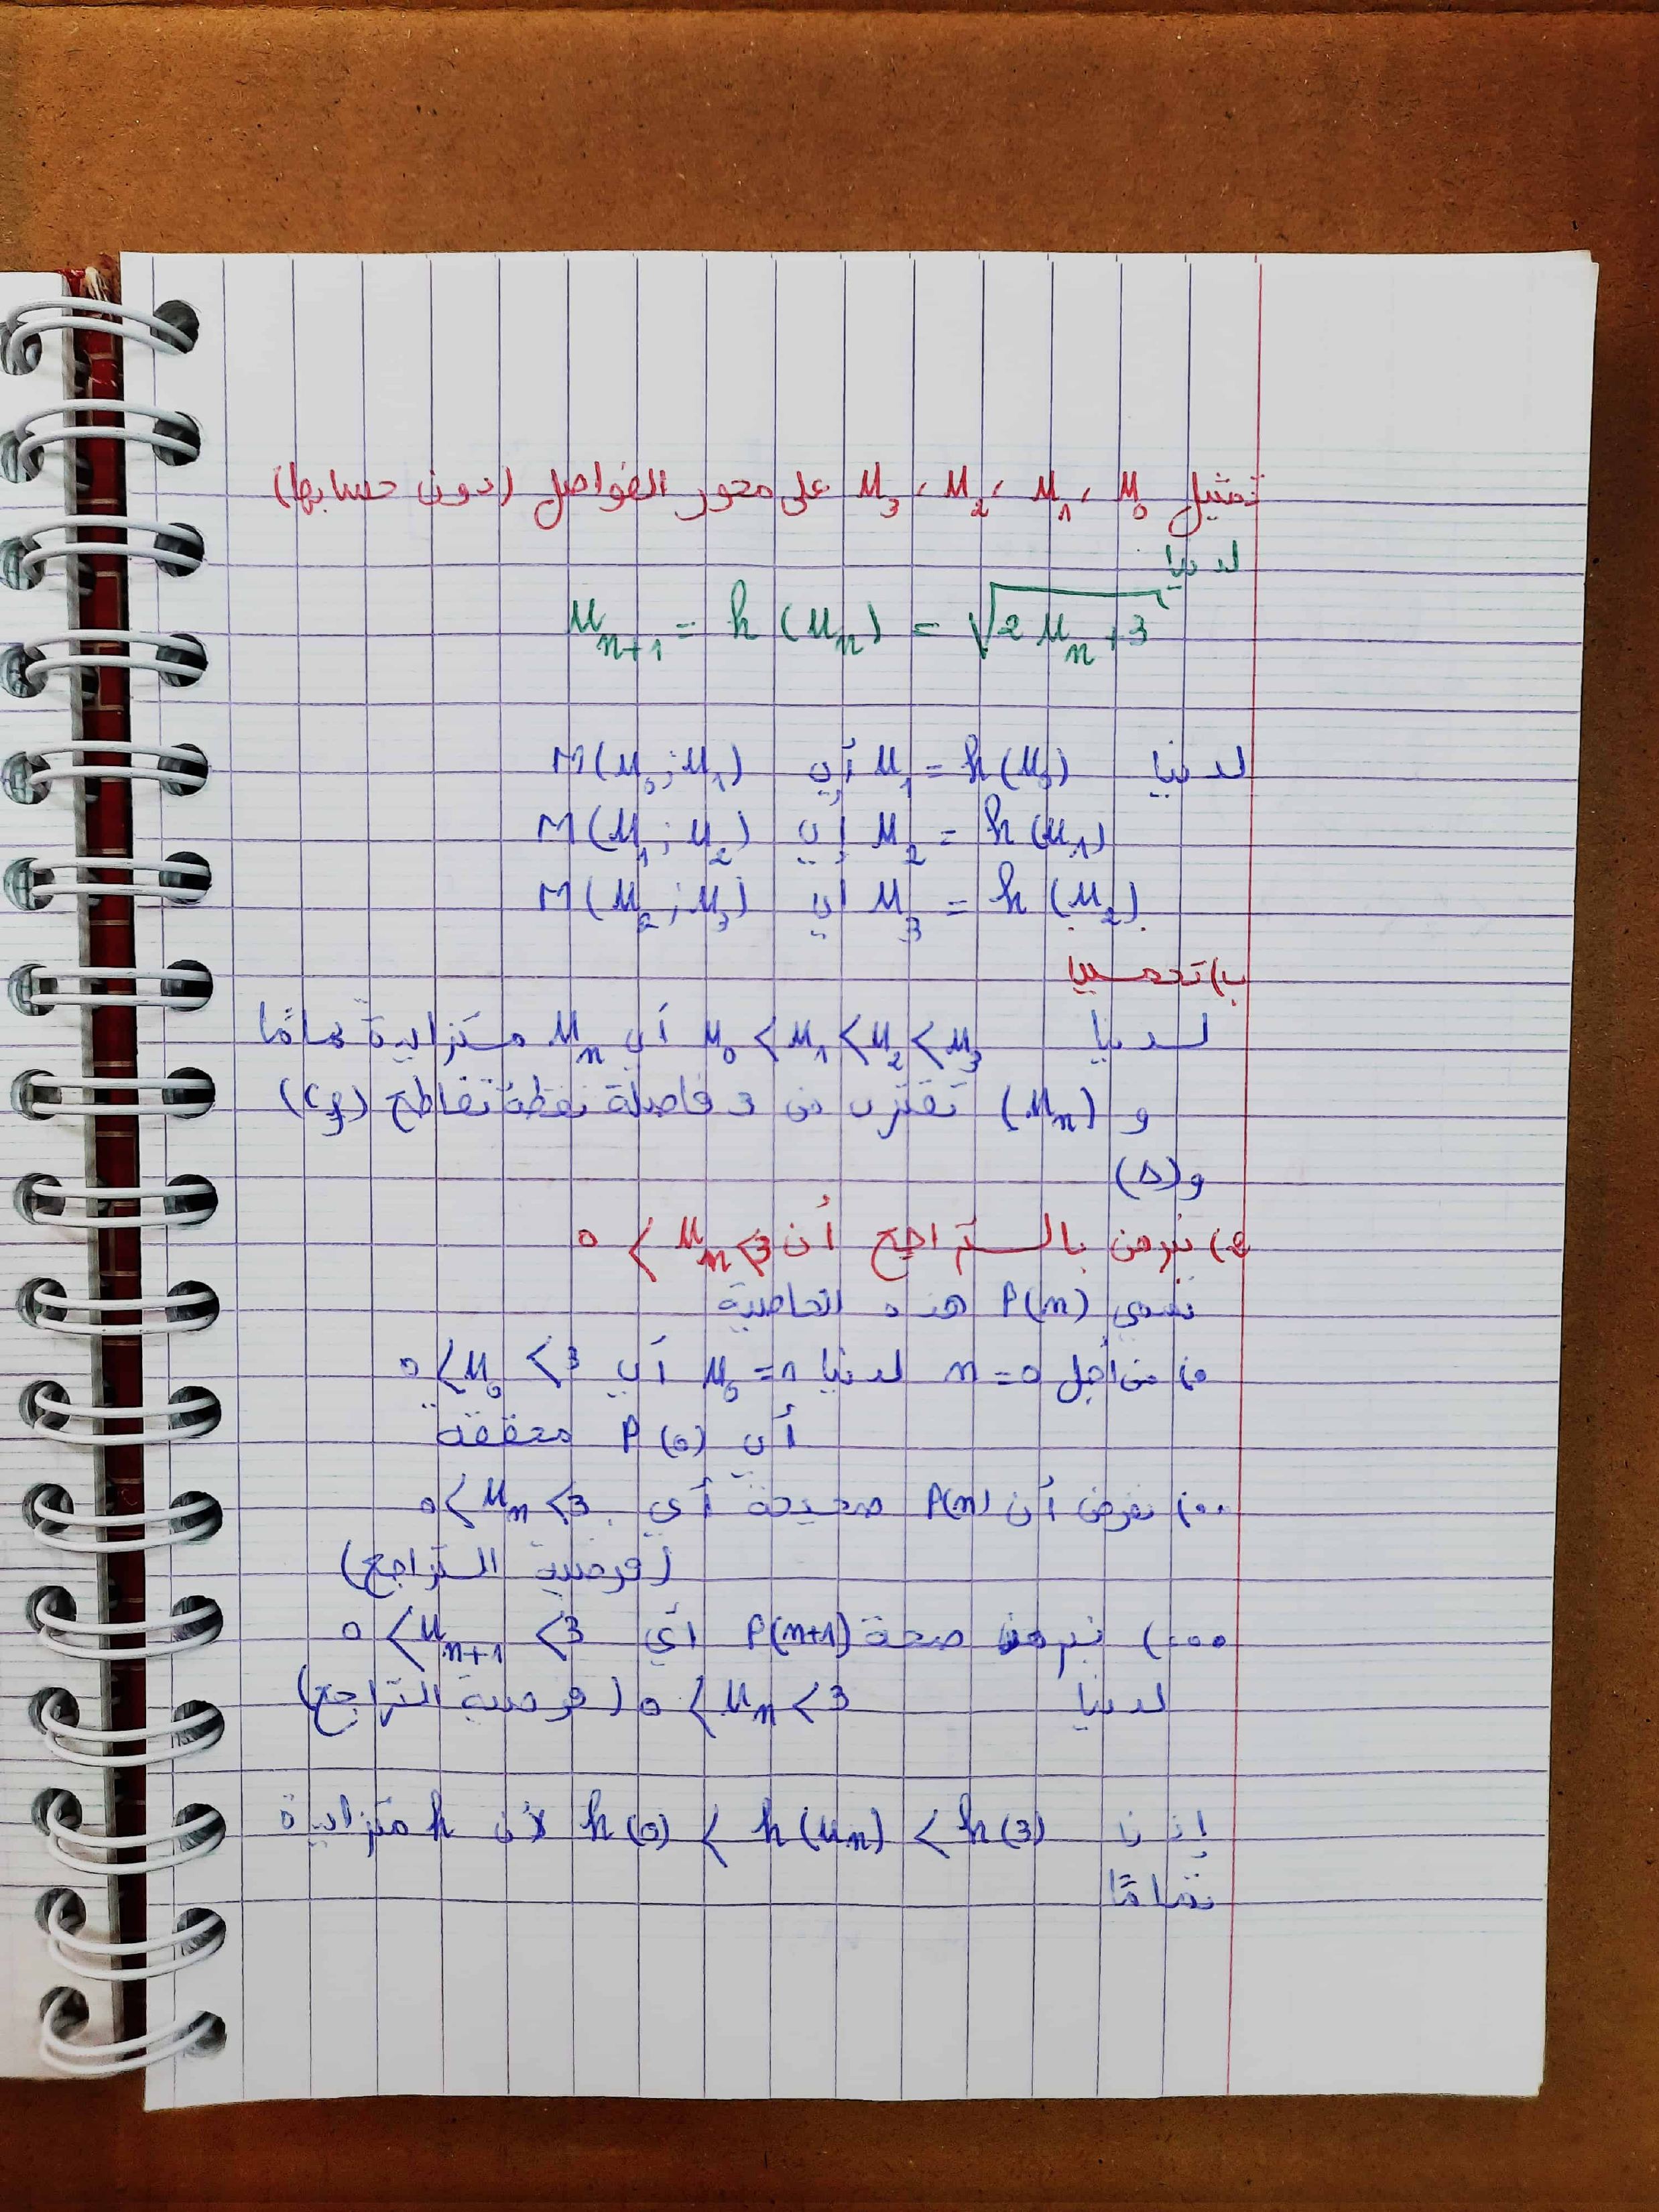 تمثيل u₀، u₁، u₂، u₃ على محور الفواصل (دون حسابها)
لدينا
u_{n+1} = h(u_n) = √(2u_n + 3)
لدينا u₁ = h(u₀) أي M(u₀; u₁)
u₂ = h(u₁) أي M(u₁; u₂)
u₃ = h(u₂) أي M(u₂; u₃)
ب) تخمين
لدينا u₀ < u₁ < u₂ < u₃ أي u_n متزايدة تماما
و (u_n) تقترب من 3 فاصلة نقطة تقاطع (Cf)
و(Δ)
2) نبرهن بالتراجع أن 0 < u_n < 3
نسمي P(n) هذه الخاصية
•) من أجل n = 0 لدينا u₀ = 1 أي 0 < u₀ < 3
أي P(0) محققة
••) نفرض أن P(n) صحيحة أي 0 < u_n < 3
(فرضية التراجع)
•••) نبرهن صحة P(n+1) أي 0 < u_{n+1} < 3
لدينا 0 < u_n < 3 (فرضية التراجع)
إذن h(0) < h(u_n) < h(3) لأن h متزايدة
تماما